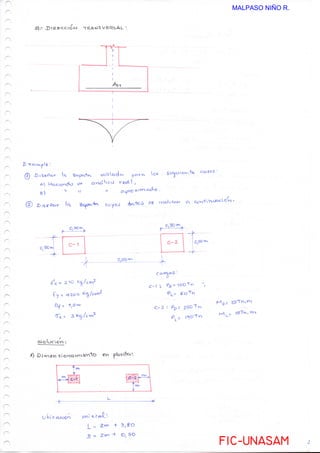 MALPASO NIÑO R.
B.- DIRECCIÓN TRANSVERSAL :
Ast
Ejemplo:
① Diseñar la zapata aislada para los siguientes casos:
a) Haciendo un análisis real,
b) " " " aproximado.
② Diseñar la zapata cuyos datos se indican a continuación.
0,30m
0,30m
0,30m
C-1
C-2
0,30m
3,00m
f'c = 210 kg/cm²
fy = 4200 kg/cm²
σt = 3 kg/cm²
cargas:
C-1 : PD = 100 Tn
PL = 80 Tn
C-2 : PD = 200 Tn
PL = 150 Tn
MD = 10 Tn.m
SOLUCIÓN :
A) Dimensionamiento en planta:
m
m
C-1
C-2
m
m
L
Ubicación inicial:
L = 2m + 3,80
S = 2m + 0,30
FIC-UNASAM